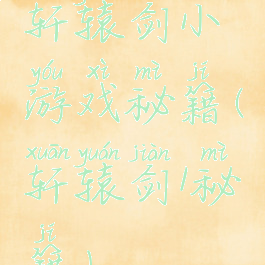 轩辕剑小
yóu xì mì jí
游戏秘籍(
xuān yuán jiàn mì
轩辕剑/秘
jí
籍)